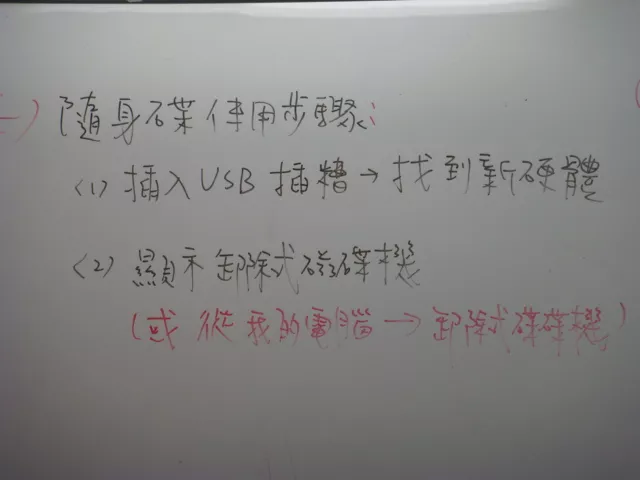 一) 隨身碟使用步驟:
(1) 插入 USB 插糟→找到新硬體
(2) 顯示卸除式磁碟機
(或從我的電腦→卸除式磁碟機)